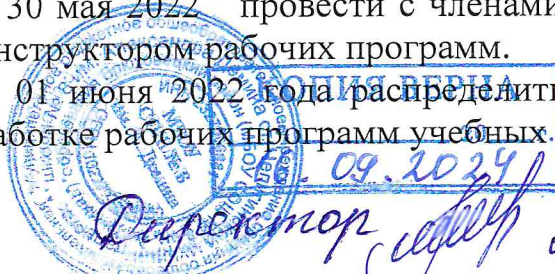 30 мая 2022 провести с членами
нструктором рабочих программ.
01 июня 2022 года распределить
КОПИЯ ВЕРНА
аботке рабочих программ учебных
09.2024
Директор